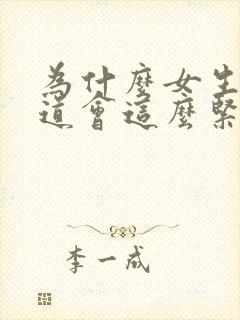 為什麼女生
道會這麼緊
李一成